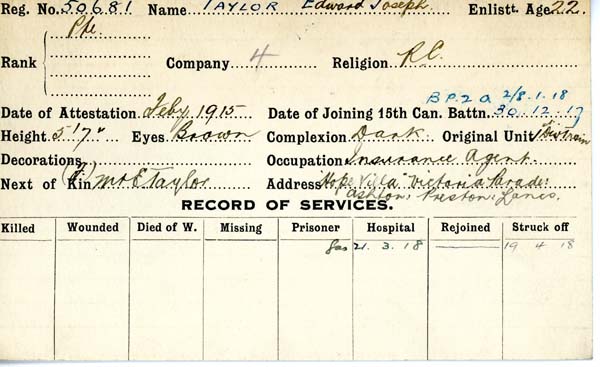 Reg. No. 50681 Name TAYLOR Edward Joseph Enlistt. Age 22.
Pte.
Rank Company 4 Religion R.C.
B.P.2 a 2/8.1.18
Date of Attestation Feby. 1915 Date of Joining 15th Can. Battn. 30.12.17
Height 5'7" Eyes Brown Complexion Dark Original Unit Train
Decorations Occupation Insurance Agent.
(F.)
Next of Kin Mr E Taylor Address Hope Villa" Victoria Parade:
Ashton: Preston: Lancs.
RECORD OF SERVICES.
Killed Wounded Died of W. Missing Prisoner Hospital Rejoined Struck off
Gas 21. 3. 18 19 4 18